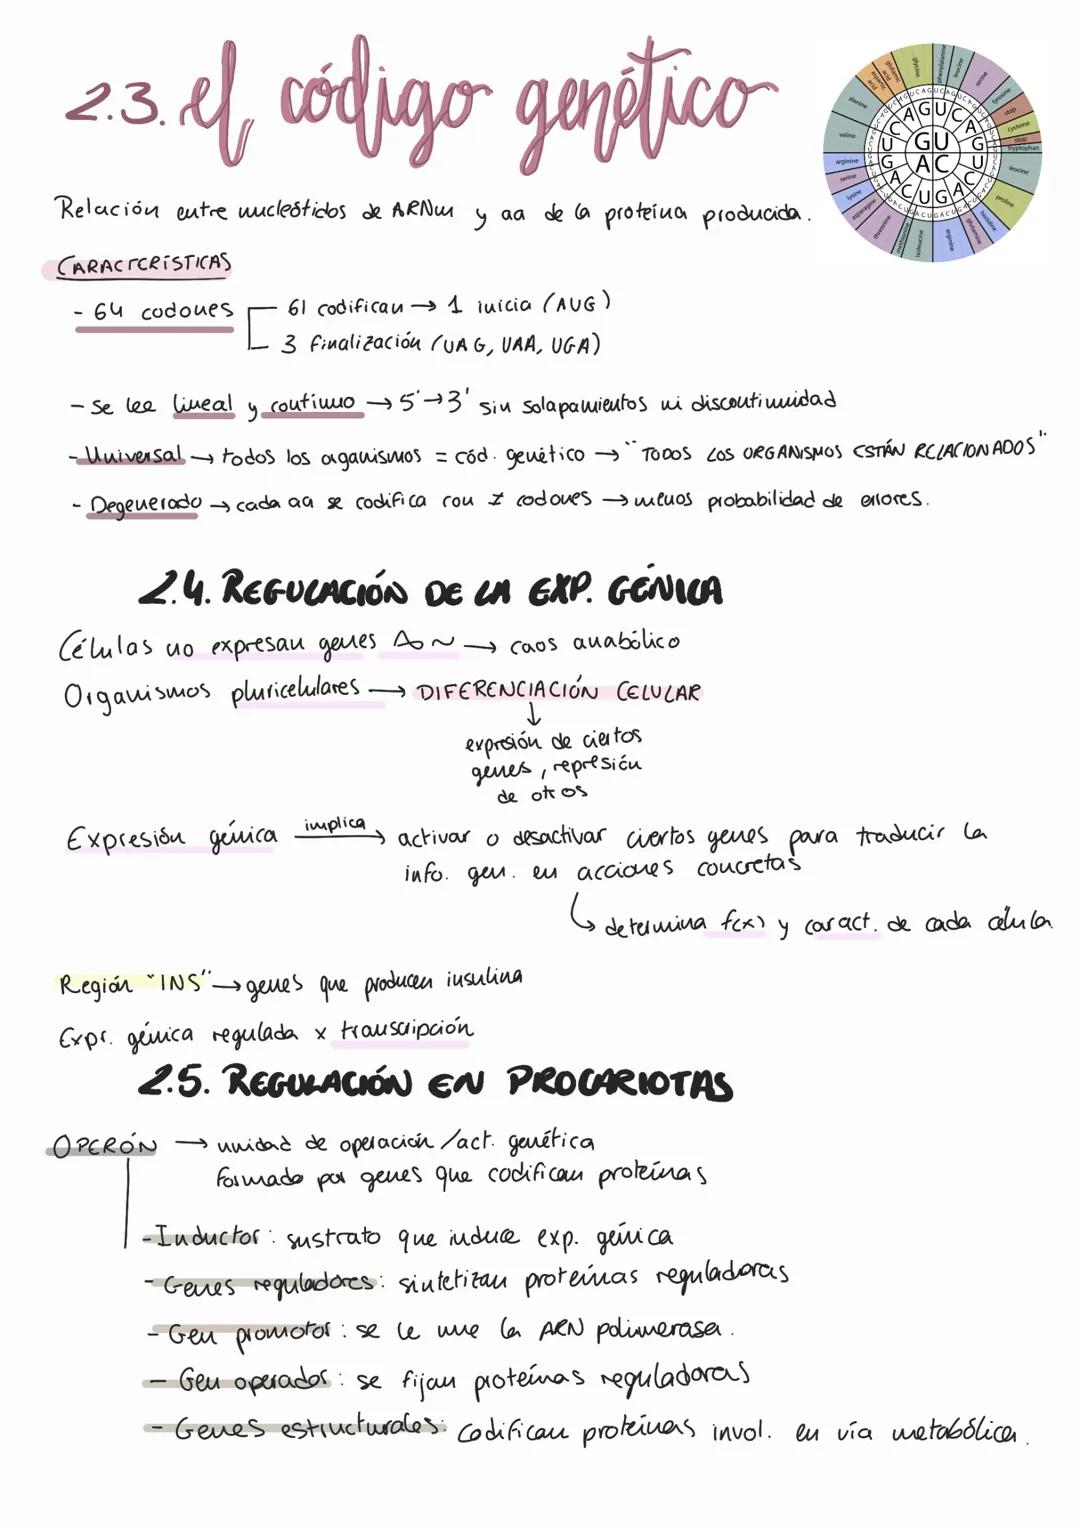 2.3. el código genético
Relación entre nucleótidos de ARNm y aa de la proteína producida.
CARACTERÍSTICAS
- 64 codones
61 codifican → 1 inicia (AUG)
3 finalización (UAG, UAA, UGA)
- Se lee lineal y continuo → 5'→3' sin solapamientos ni discontinuidad
- Universal → todos los organismos = cód. genético → "TODOS LOS ORGANISMOS ESTÁN RELACIONADOS"
- Degenerado → cada aa se codifica con ≠ codones → menos probabilidad de errores.
2.4. REGULACIÓN DE LA EXP. GÉNICA
Células no expresan genes → caos anabólico
Organismos pluricelulares → DIFERENCIACIÓN CELULAR
↓
expresión de ciertos
genes, represión
de otros
Expresión génica implica → activar o desactivar ciertos genes para traducir la
info. gen. en acciones concretas
↳ determina f(x) y caract. de cada célula
Región "INS" → genes que producen insulina
Expr. génica regulada x transcripción
2.5. REGULACIÓN EN PROCARIOTAS
OPERÓN → unidad de operación/act. genética
formado por genes que codifican proteínas
- Inductor: sustrato que induce exp. génica
- Genes reguladores: sintetizan proteínas reguladoras
- Gen promotor: se le une la ARN polimerasa.
- Gen operador: se fijan proteínas reguladoras
- Genes estructurales: codifican proteínas invol. en vía metabólica.
glycine
phenylalanine
leucine
serine
tyrosine
stop
cysteine
stop
tryptophan
leucine
proline
histidine
glutamine
arginine
isoleucine
methionine
threonine
asparagine
lysine
serine
arginine
valine
alanine
aspartic acid
glutamic acid
GU
AC